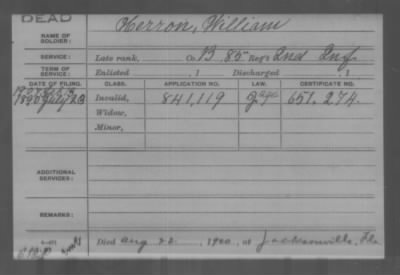 DEAD
NAME OF SOLDIER: Oherron, William
SERVICE: Late rank, Co. B 85 Reg't Ind Inf
TERM OF SERVICE: Enlisted , 1 Discharged , 1
DATE OF FILING. CLASS. APPLICATION NO. LAW. CERTIFICATE NO.
1890 July 23 Invalid, 841,119 651.274
Widow,
Minor,
ADDITIONAL SERVICES:
REMARKS:
Died Aug 22, 1920, at Jacksonville, Fla